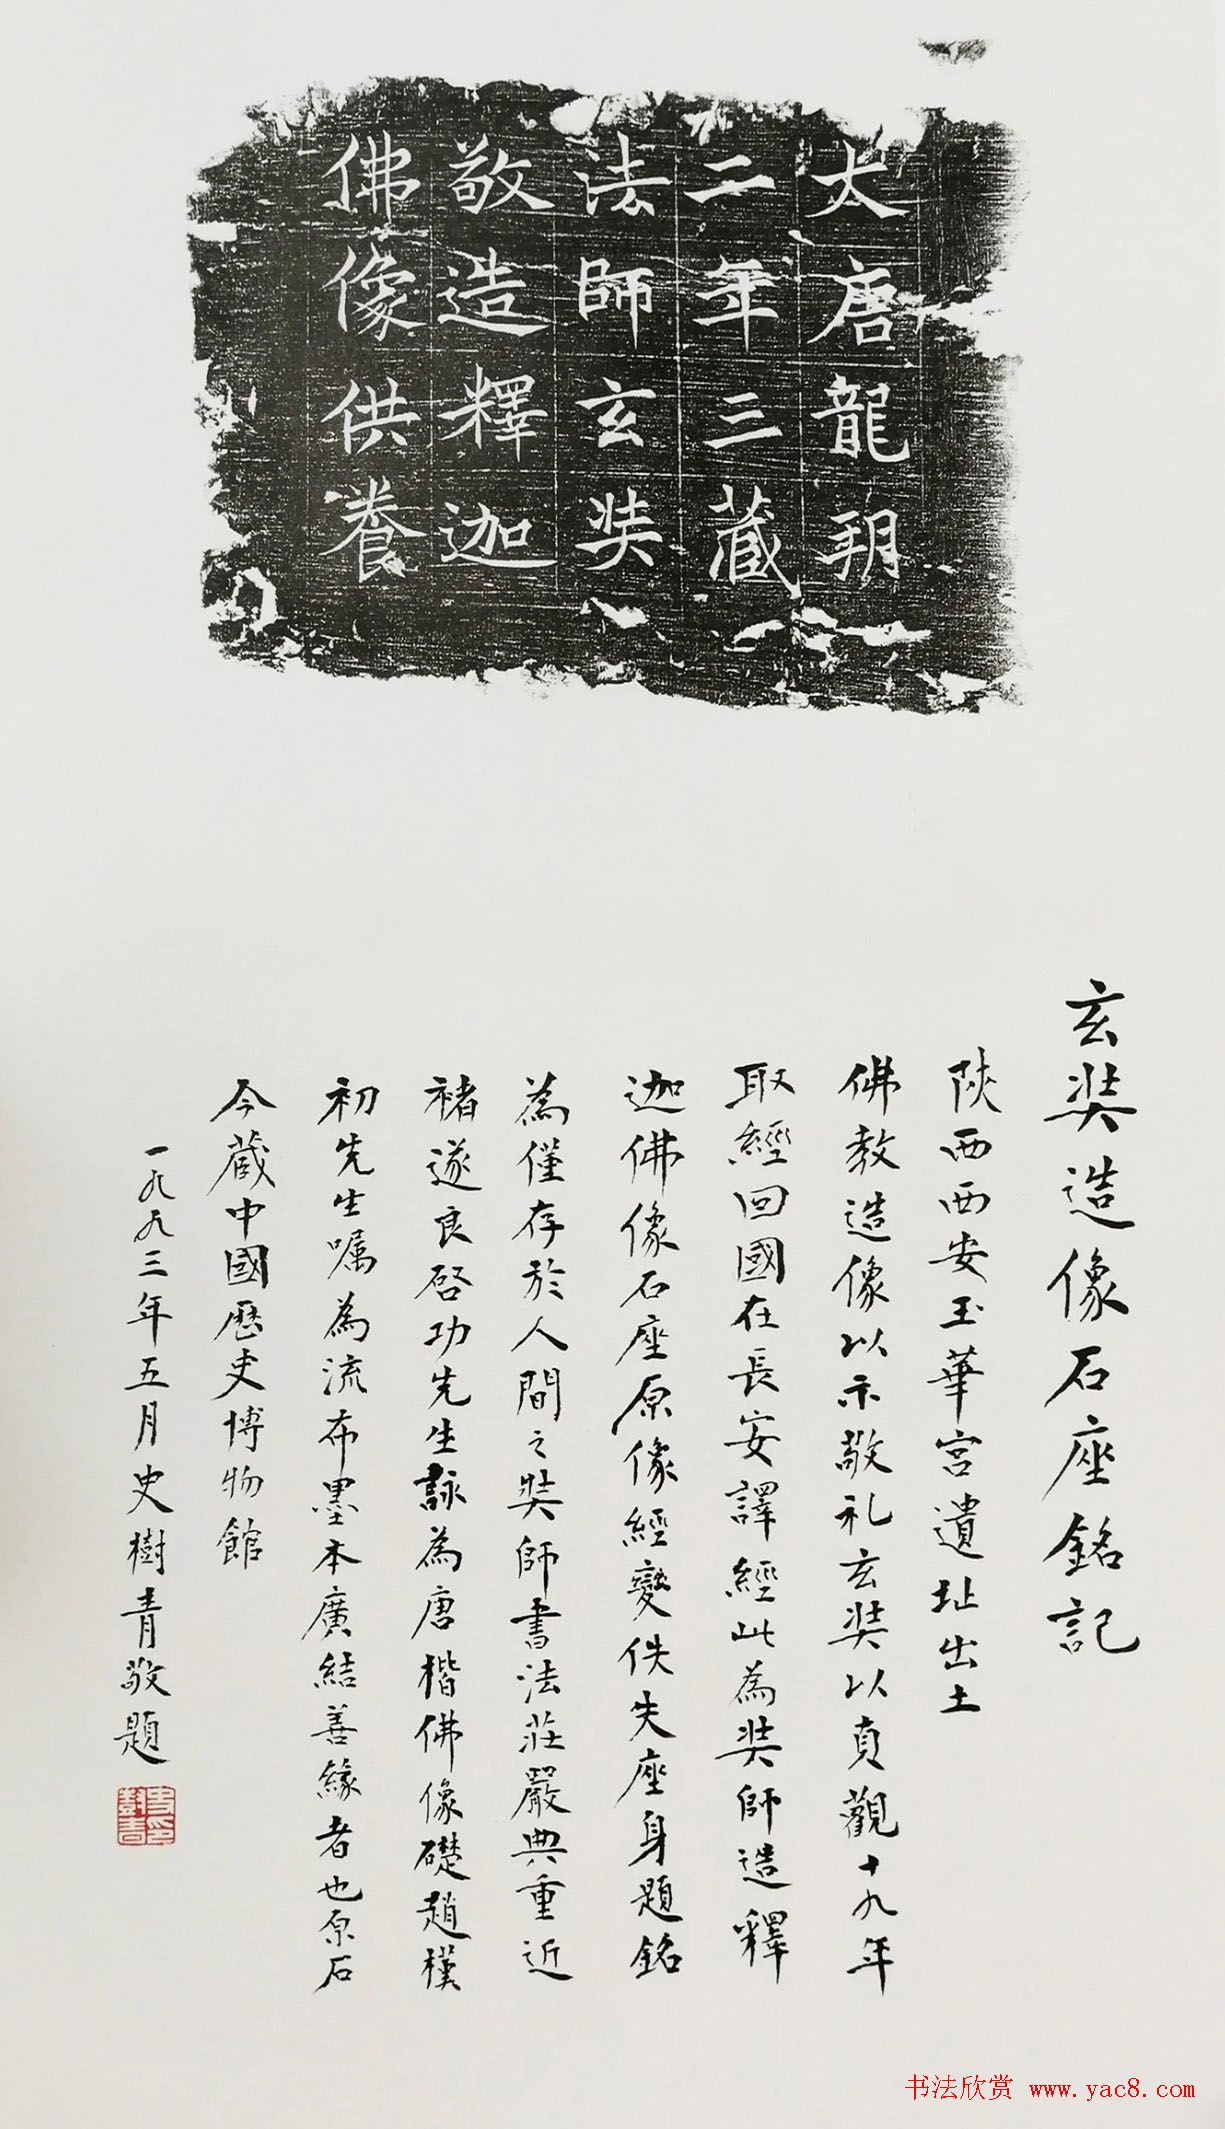 大唐龍朔
二年三藏
法師玄奘
敬造釋迦
佛像供養
玄奘造像石座銘記
陝西西安玉華宮遺址出土
佛教造像以示敬礼玄奘以貞觀十九年
取經回國在長安譯經此為奘師造釋
迦佛像石座原像經變佚失座身題銘
為僅存於人間之奘師書法莊嚴典重近
褚遂良啓功先生詠為唐楷佛像礎趙樸
初先生嘱為流布墨本廣結善緣者也原石
今藏中國歷史博物館
一九九三年五月史樹青敬題
史樹青印
书法欣赏 www.yac8.com